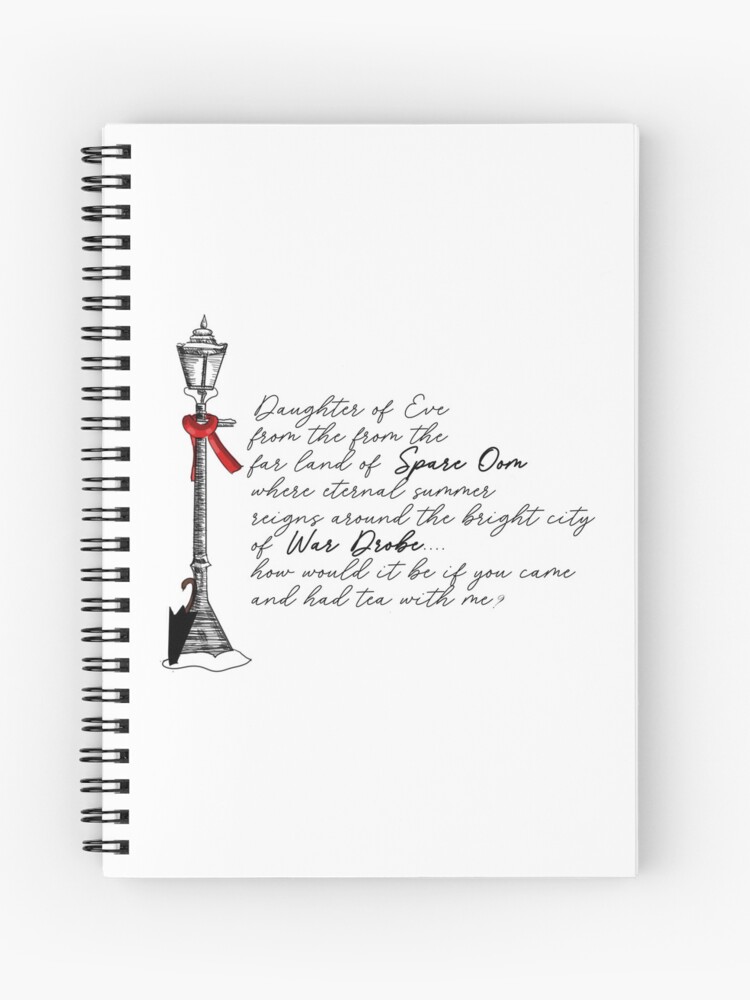 Daughter of Eve
from the from the
far land of Spare Oom
where eternal summer
reigns around the bright city
of War Drobe....
how would it be if you came
and had tea with me?